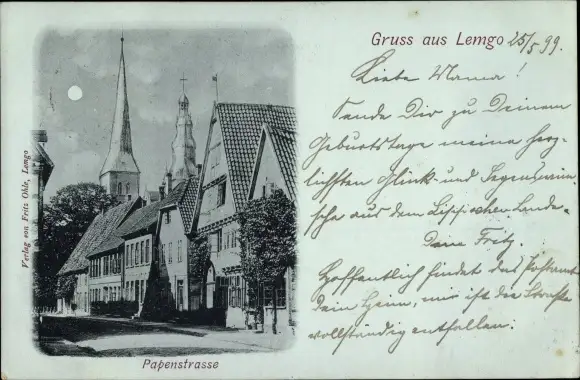 Gruss aus Lemgo 25/5 99.
Liebe Mama!
Sende Dir zu Deinem
Geburtstage meine herz-
lichsten Glück- und Segenswün-
sche aus dem Lippischen Lande.
Dein Fritz.
Hoffentlich findet das Postamt
Dein Heim, mir ist die Straße
vollständig entfallen.
Verlag von Fritz Ohle, Lemgo
Papenstrasse